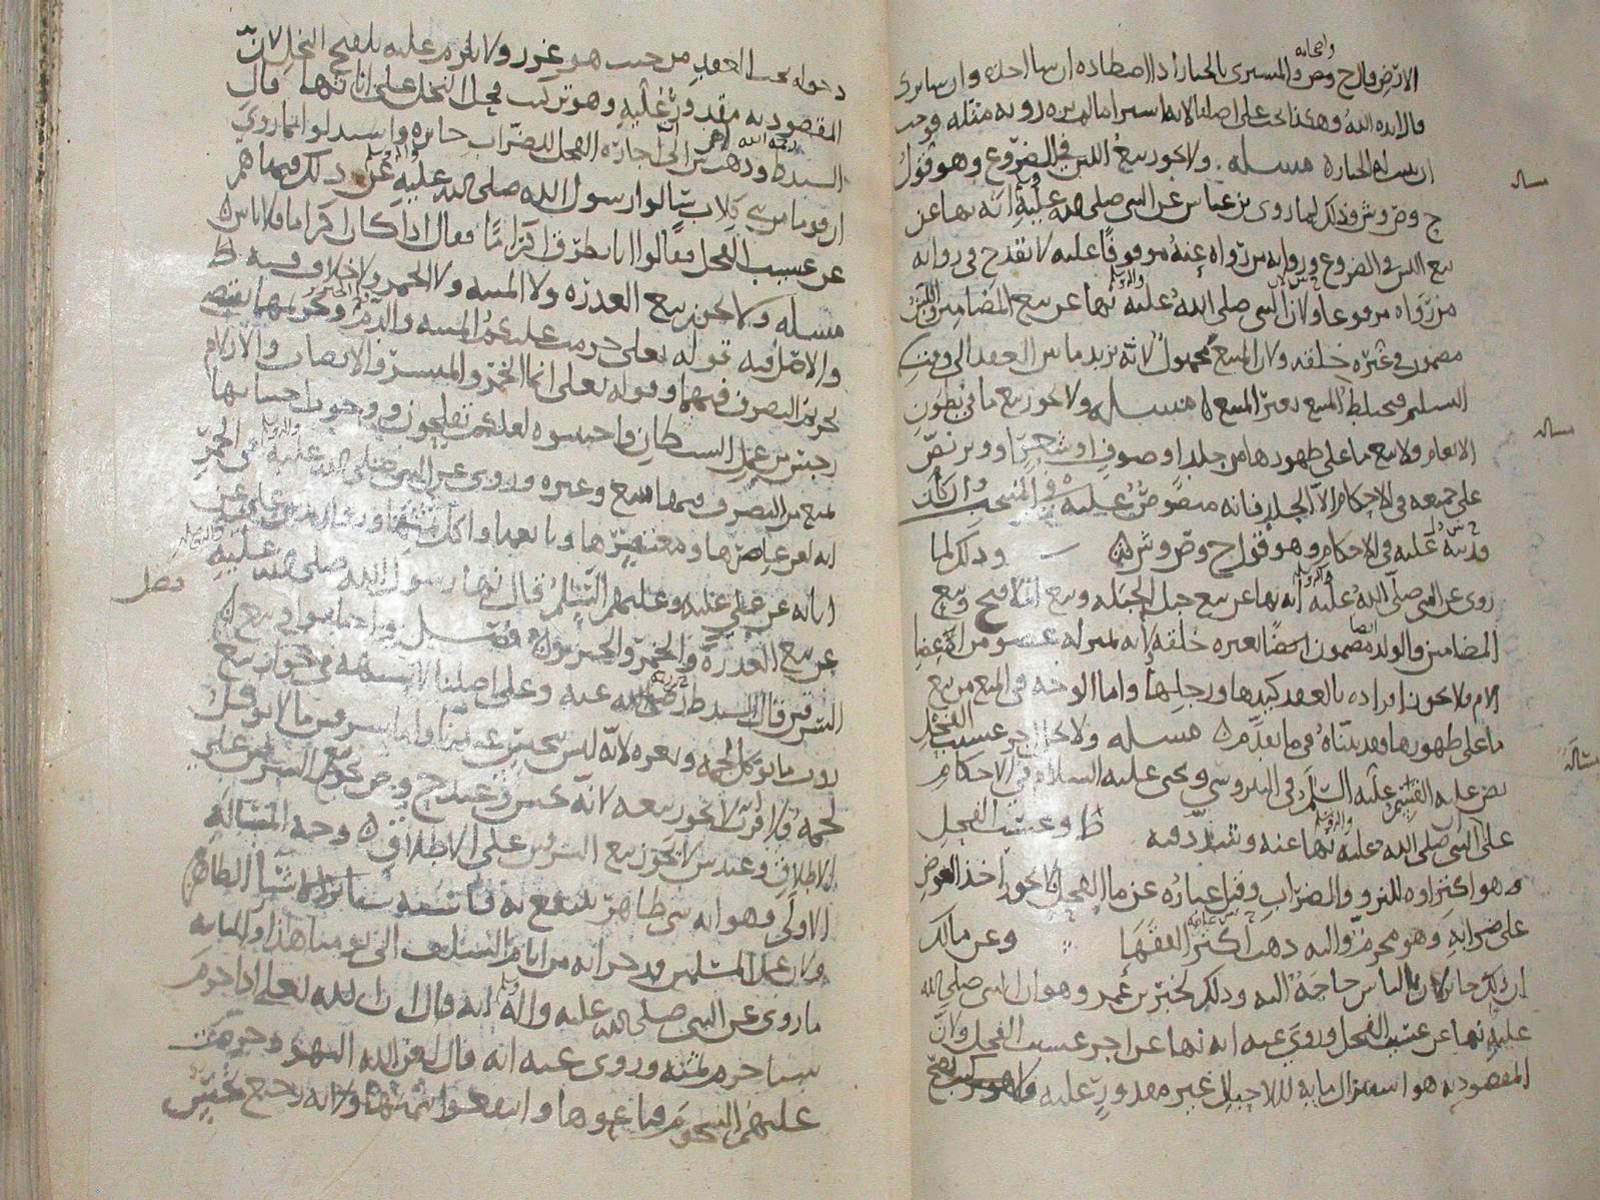 واصحابه
الارض قال ح وص والمشترى بالخيار اذا اصطاده ان شا اخذه وان شا ترك
قال ايده الله وهكذا يجب على اصلنا لانه اشترا ما لم يره روية مثله فوجب
ان يثبت له الخيار مسله ولا يجوز بيع اللبن في الضروع وهو قول
مساله
ح وص وش وذلك لما روى بن عباس عن النبي صلى الله عليه انه نها عن
بيع اللبن في الضروع ورواية من رواه عنه موقوفا عليه لا تقدح في رواية
من رواه مرفوعا ولان النبي صلى الله عليه نها عن بيع المضامين واللبن
مضمون في غيره خلقه ولان المبيع مجهول لانه يزيد ما بين العقد الى وقت
التسليم فيختلط المبيع بغير المبيع مسله ولا يجوز بيع ما في بطون
مساله
الانعام ولا بيع ما على ظهورها من جلد او صوف او شعر او وبر نص
على جميعه في الاحكام الا الجلد فانه منصوص عليه في المنتخب وان كان
قد نبه عليه في الاحكام وهو قول ح وص وش وذلك لما
روى عن النبي صلى الله عليه انه نها عن بيع حبل الحبله وبيع الملاقيح وبيع
المضامين والولد مضمون ايضا بغيره خلقه لانه بمنزلة عضو من اعضا
الام فلا يجوز افراده بالعقد كيدها ورجلها واما الوجه في المنع من بيع
ما على ظهورها فقد بيناه في ما تقدم مسله ولا يحل اجر عسب الفحل
مساله
نص عليه القسم عليه السلم في النيروسي ويحيى عليه السلام في الاحكام
على ان النبي صلى الله عليه نها عنه وشدد فيه ط وعسب الفحل
هو اكتراوه للنزو والضراب وقيل عباره عن ما الفحل فلا يجوز اخذ العوض
على ضرابه وهو محرم واليه ذهب اكثر الفقها وعن مالك
ان ذلك جائز لان بالناس حاجة اليه وذلك لخبر بن عمر وهو ان النبي صلى الله
عليه نها عن عسب الفحل وروي عنه انه نها عن اجر عسب الفحل ولان
المقصود به هو استنزال مايه للاحبال غير مقدور عليه
دخوله تحت العقد من حيث هو غرر ولا يلزم عليه تلقيح النخل لان
المقصود به مقدور عليه وهو تركيب فحل النخل على اناثها قال
السيد ط وذهب الى اجازة الفحل للضراب جائزه واستدلوا بما روي
ان قوما من بني كلاب سالوا رسول الله صلى الله عليه عن ذلك فنهاهم
عن عسيب الفحل فقالوا انا نطرق اكراما فقال اذا كان اكراما فلا باس
مسله ولا يجوز بيع العذره ولا الميته ولا الخمر ولا خلاف فيه ط
والاصل فيه قوله تعالى حرمت عليكم الميته والدم وتحريمهما يقتضي
تحريم التصرف فيهما وقوله تعالى انما الخمر والميسر والانصاب والازلام
رجس من عمل الشيطان فاجتنبوه لعلكم تفلحون ووجوب اجتنابها
يمنع من التصرف فيها ببيع وغيره وروي عن النبي صلى الله عليه في الخمر
انه لعن عاصرها ومعتصرها وبايعها واكل ثمنها
ابائه عن علي عليه وعليهم السلم قال نها رسول الله صلى الله عليه
عن بيع العذره والخمر والخنزير فصل واختلفوا في بيع
فصل
السرقين قال السيد ط رضي الله عنه وعلى اصلنا لا شبهه في جواز بيع
روث ما يوكل لحمه وبعره لانه ليس بنجس عندنا واما سرقين ما لا يوكل
لحمه فلا يجوز بيعه لانه نجس وعند ح وص يجوز بيع السرقين على
الاطلاق وعند ش لا يجوز بيع السرقين على الاطلاق وجه المسالة
الاولى وهو انه شي طاهر ينتفع به فاشبه سائر الاشيا الطاهره
ولان عمل المسلمين قد جرا به من ايام السلف الى يومنا هذا
ما روي عن النبي صلى الله عليه واله انه قال ان الله تعالى اذا حرم
شيئا حرم ثمنه وروي عنه انه قال لعن الله اليهود حرمت
عليهم الشحوم فباعوها وانتفعوا بثمنها ولانه رجيع نجس